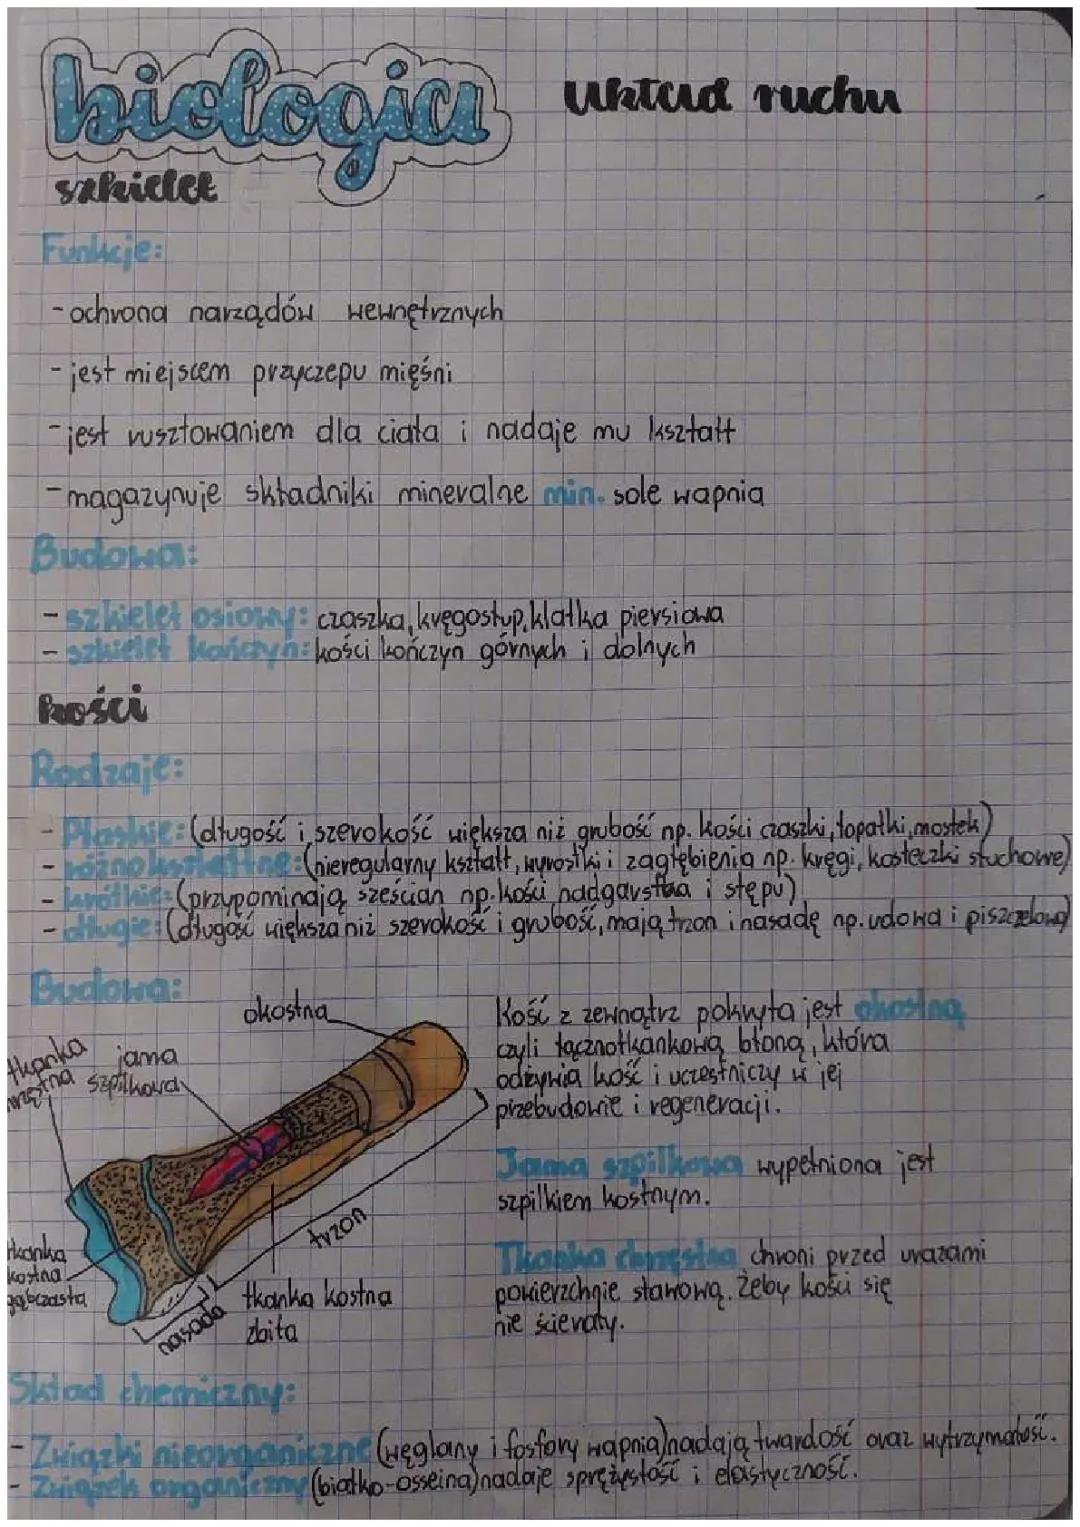 biologia
Układ ruchu
szkielet
Funkcje:
- ochrona narządów wewnętrznych
- jest miejscem przyczepu mięśni
- jest rusztowaniem dla ciała i nadaje mu kształt
- magazynuje składniki mineralne min. sole wapnia
Budowa:
- szkielet osiowy: czaszka, kręgosłup, klatka piersiowa
- szkielet kończyn: kości kończyn górnych i dolnych
Kości
Rodzaje:
- Płaskie: (długość i szerokość większa niż grubość np. kości czaszki, łopatki, mostek)
- różnokształtne: (nieregularny kształt, wyrostki i zagłębienia np. kręgi, kosteczki słuchowe)
- krótkie: (przypominają sześcian np. kości nadgarstka i stępu)
- długie: (długość większa niż szerokość i grubość, mają trzon i nasadę np. udowa i piszczelowa)
Budowa:
okostna
tkanka
jama
szpikowa
trzon
tkanka
kostna
gąbczasta
nasada
tkanka kostna
zbita
Kość z zewnątrz pokryta jest okostną
czyli łącznotkankową błoną, która
odżywia kość i uczestniczy w jej
przebudowie i regeneracji.
Jama szpilkowa wypełniona jest
szpilkiem kostnym.
Tkanka chrzęstna chroni przed urazami
powierzchnie stawową. Żeby kości się
nie ścierały.
Skład chemiczny:
- Związki nieorganiczne (węglany i fosfory wapnia) nadają twardość oraz wytrzymałość.
- Związek organiczny (białko-osseina) nadaje sprężystość i elastyczność.